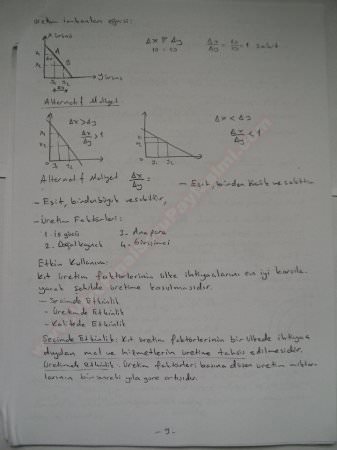 Üretim imkanları eğrisi:
x (ürünü)
Δx = Δy
Δx/Δy = 10/10 = 1 sabit
10 = 10
x1
A
x2
B
y1 y2
y (ürünü)
Alternatif Maliyet.
Δx > Δy
Δx/Δy > 1
Δx < Δy
Δx/Δy < 1
Alternatif Maliyet Δx/Δy =
- Eşit, birden küçük ve sabittir
- Eşit, birden büyük ve sabittir.
- Üretim Faktörleri:
1. İş gücü
3. Ana para
2. Doğal kaynak
4. Girişimci
Etkin Kullanım:
Kıt üretim faktörlerinin ülke ihtiyaçlarını en iyi karşıla-
yacak şekilde üretime koşulmasıdır.
- Seçimde Etkinlik
- Üretimde Etkinlik
- Kalitede Etkinlik
Seçimde Etkinlik: Kıt üretim faktörlerinin bir ülkede ihtiyaç
duyulan mal ve hizmetlerin üretime tahsis edilmesidir.
Üretimde Etkinlik: Üretim faktörleri başına düşen üretim miktar-
larının bir önceki yıla göre artışıdır.
- 9 -